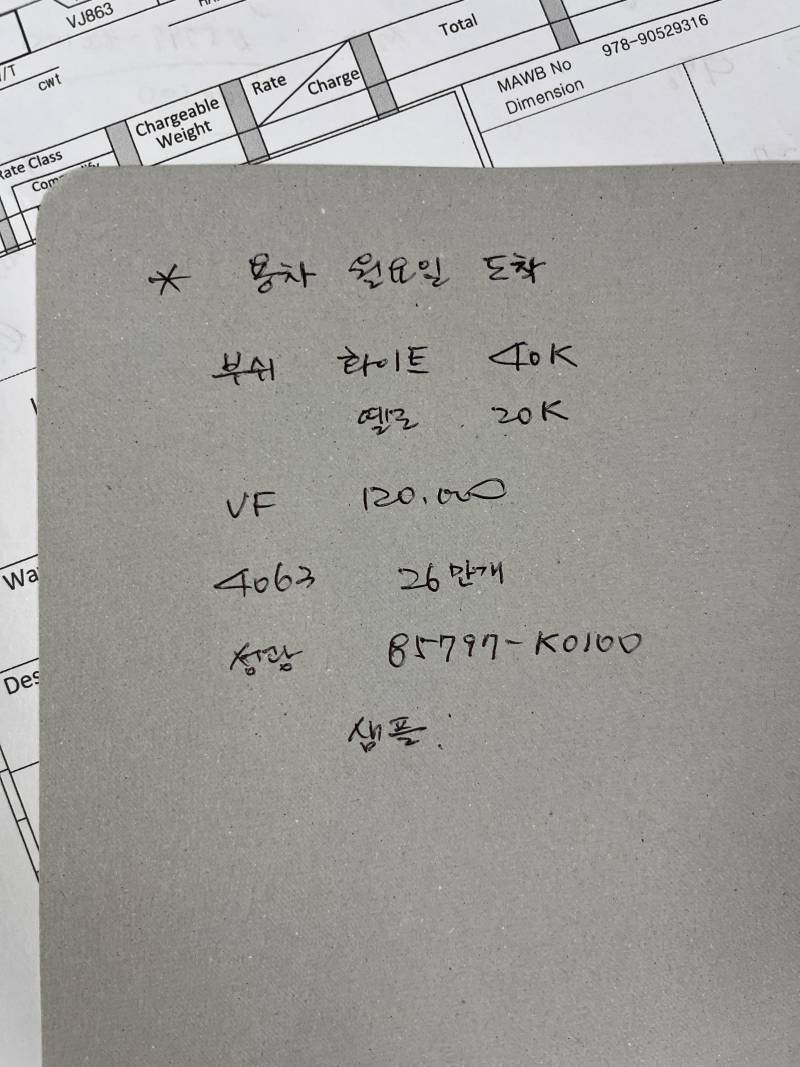 VJ863
cwt
Rate Class
Chargeable Weight
Rate
Charge
Total
MAWB No 978-90529316
Dimension
* 용차 월요일 도착
부쉬 화이트 40K
옐로 20K
VF 120.000
4063 26만개
성광 85797-K0100
샘플.